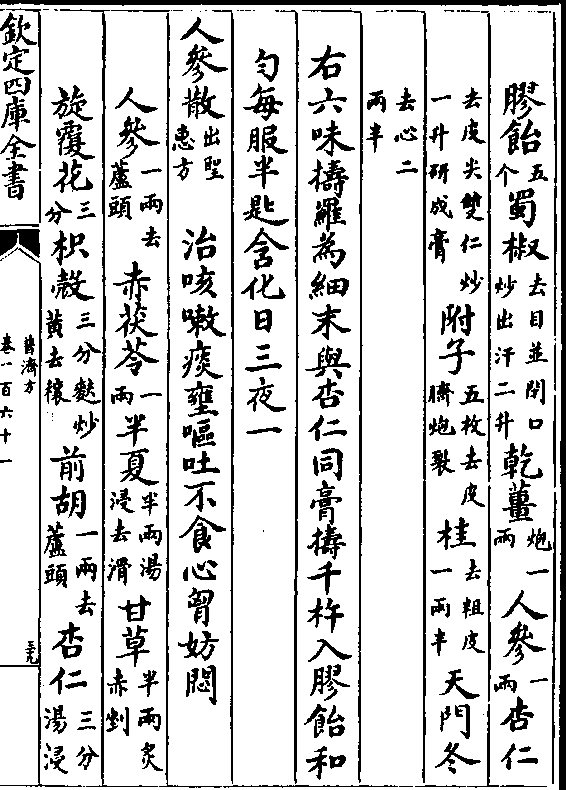 膠飴五个蜀椒去目並閉口炒出汗二升乾薑炮一兩人參一兩杏仁
去皮尖雙仁炒一升研成膏附子五枚去皮臍炮裂桂去粗皮一兩半天門冬
去心二兩半
右六味擣羅為細末與杏仁同膏擣千杵入膠飴和
勻每服半匙含化日三夜一
人參散出聖惠方治咳嗽痰壅嘔吐不食心胷妨悶
人參一兩去蘆頭赤茯苓一兩半夏半兩湯浸去滑甘草半兩炙赤剉
旋覆花三分枳殼三分麩炒黄去穰前胡一兩去蘆頭杏仁三分湯浸
欽定四庫全書
普濟方
卷一百六十一